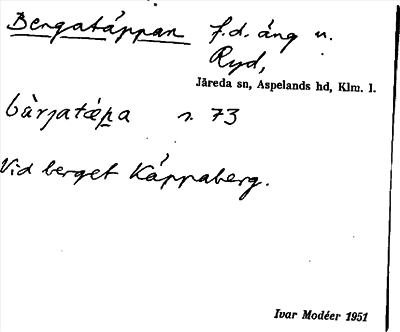 Bergatäppan f.d. äng u.
Ryd,
Järeda sn, Aspelands hd, Klm. l.
bàrjatæ̀pa s. 73
Vid berget Käppaberg.
Ivar Modéer 1951